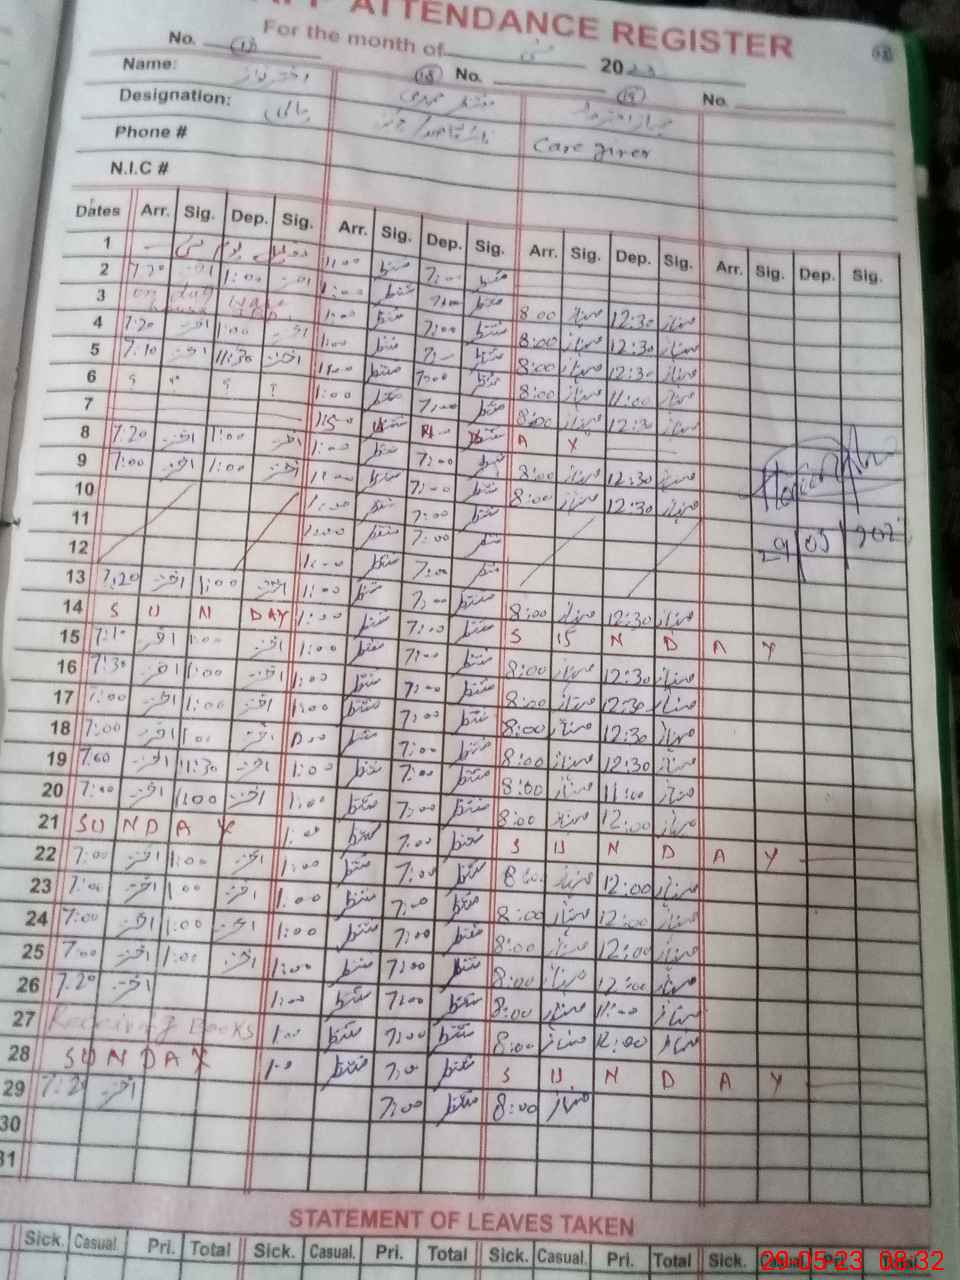 ATTENDANCE REGISTER
For the month of مئی 2023
No. No. No.
Name: اختر نواز
Designation: مالی
Phone # Care giver
N.I.C #
Dates Arr. Sig. Dep. Sig. Arr. Sig. Dep. Sig. Arr. Sig. Dep. Sig. Arr. Sig. Dep. Sig.
1 1:00 منتظر 7:00 منتظر
2 7:20 اختر 1:00 اختر 1:00 منتظر 7:00 منتظر
3 on day 1:00 منتظر 7:00 منتظر 8:00 ممتاز 12:30 ممتاز
4 7:20 اختر 1:00 اختر 1:00 منتظر 7:00 منتظر 8:00 ممتاز 12:30 ممتاز
5 7:10 اختر 11:30 اختر 1:00 منتظر 7:00 منتظر 8:00 ممتاز 12:30 ممتاز
6 ? ? ? ? 1:00 منتظر 7:00 منتظر 8:00 ممتاز 11:00 ممتاز
7 8:00 ممتاز 12:30 ممتاز
8 7:20 اختر 1:00 اختر 1:00 منتظر 7:00 منتظر A Y
9 7:00 اختر 1:00 اختر 1:00 منتظر 7:00 منتظر 8:00 ممتاز 12:30 ممتاز
10 1:00 منتظر 7:00 منتظر 8:00 ممتاز 12:30 ممتاز
11 1:00 منتظر 7:00 منتظر
12 1:00 منتظر 7:00 منتظر 29/05/202
13 7:20 اختر 1:00 اختر 1:00 منتظر 7:00 منتظر
14 S U N DAY 1:00 منتظر 7:00 منتظر 8:00 ممتاز 12:30 ممتاز
15 7:10 اختر 1:00 اختر 1:00 منتظر 7:00 منتظر S U N D A Y
16 7:30 اختر 1:00 اختر 1:00 منتظر 7:00 منتظر 8:00 ممتاز 12:30 ممتاز
17 7:00 اختر 1:00 اختر 1:00 منتظر 7:00 منتظر 8:00 ممتاز 12:30 ممتاز
18 7:00 اختر 1:00 اختر 1:00 منتظر 7:00 منتظر 8:00 ممتاز 12:30 ممتاز
19 7:00 اختر 11:30 اختر 1:00 منتظر 7:00 منتظر 8:00 ممتاز 12:30 ممتاز
20 7:00 اختر 1:00 اختر 1:00 منتظر 7:00 منتظر 8:00 ممتاز 11:00 ممتاز
21 SUNDAY 1:00 منتظر 7:00 منتظر 8:00 ممتاز 12:00 ممتاز
22 7:00 اختر 1:00 اختر 1:00 منتظر 7:00 منتظر S U N D A Y
23 7:00 اختر 1:00 اختر 1:00 منتظر 7:00 منتظر 8:00 ممتاز 12:00 ممتاز
24 7:00 اختر 1:00 اختر 1:00 منتظر 7:00 منتظر 8:00 ممتاز 12:00 ممتاز
25 7:00 اختر 1:00 اختر 1:00 منتظر 7:00 منتظر 8:00 ممتاز 12:00 ممتاز
26 7:20 اختر 1:00 منتظر 7:00 منتظر 8:00 ممتاز 12:00 ممتاز
27 Receiving Books 1:00 منتظر 7:00 منتظر 8:00 ممتاز 11:00 ممتاز
28 SUNDAY 1:00 منتظر 7:00 منتظر 8:00 ممتاز 12:00 ممتاز
29 7:20 اختر 7:00 منتظر S U N D A Y
30 8:00 ممتاز
31
STATEMENT OF LEAVES TAKEN
Sick. Casual. Pri. Total Sick. Casual. Pri. Total Sick. Casual. Pri. Total Sick. Casual. Pri. Total
29-05-23 08:32